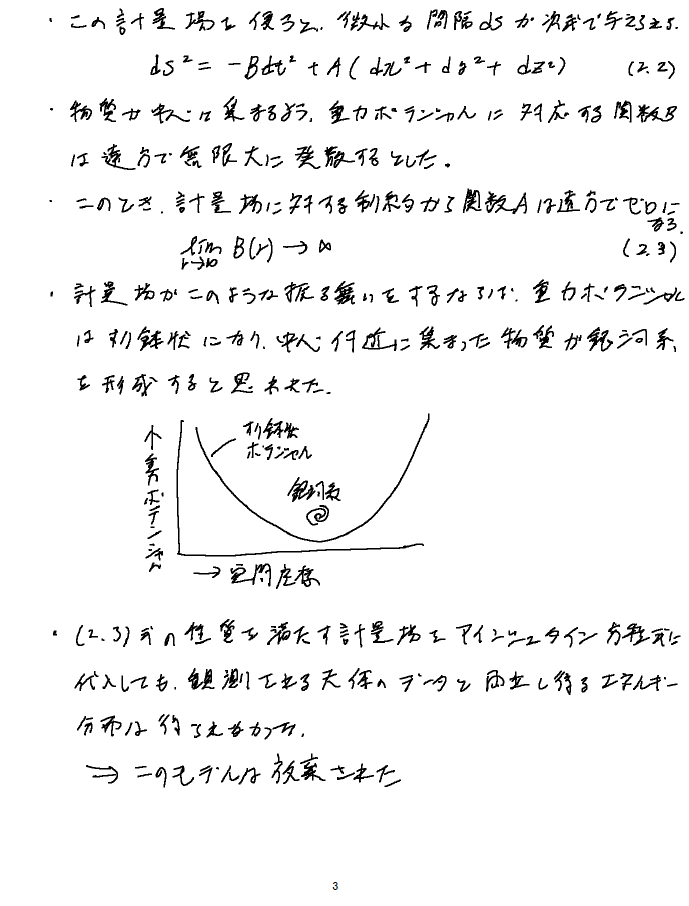 ・この計量場を使うと、微小な間隔dsが次式で与えられる.
ds² = -Bdt² + A(dx² + dy² + dz²) (2.2)
・物質が中心に集まるよう、重力ポテンシャルに対応する関数B
は遠方で無限大に発散するとした。
・このとき、計量場に対する制約から関数Aは遠方でゼロに
なる.
lim B(r) → ∞ (2.3)
r→∞
・計量場がこのような振る舞いをするならば、重力ポテンシャル
はすり鉢状になり、中心付近に集まった物質が銀河系
を形成すると思われた.
すり鉢状
ポテンシャル
銀河系
重力ポテンシャル
→ 空間座標
・(2.3)式の性質を満たす計量場をアインシュタイン方程式に
代入しても、観測される天体のデータと両立し得るエネルギー
分布は得られなかった.
⇒ このモデルは放棄された
3